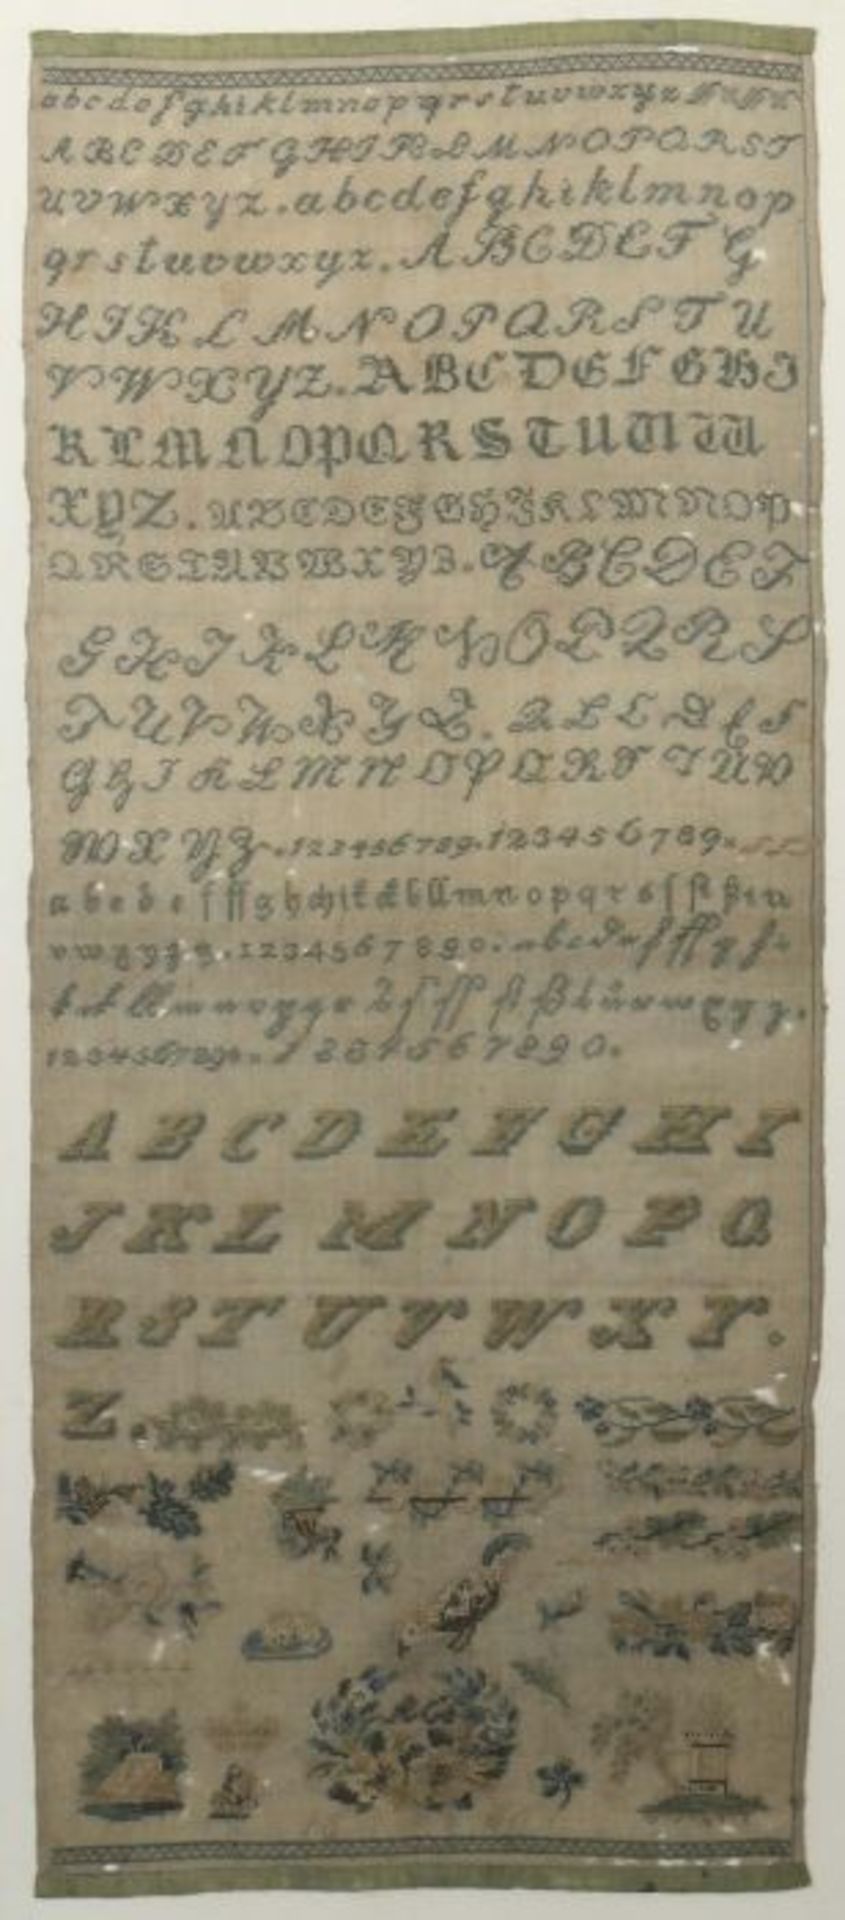 abcdefghiklmnopqrstuvwxyz
ABCDEFGHIKLMNOPQRST
UVWXYZ.abcdefghiklmnop
qrstuvwxyz.ABCDEFG
HIKLMNOPQRSTU
VWXYZ.ABCDEFGHI
KLMNOPQRSTUVW
XYZ.ABCDEFGHIKLMNOP
QRSTUVWXYZ.ABCDEF
GHIKLMNOPQRS
TUVWXYZ.ABCDEF
GHIKLMNOPQRSTUV
WXYZ.123456789.123456789
abcdefffghchikckllmnopqrsſſtßtu
vwxyz.1234567890.abcdefffgh
mnopqr ſtßtuvwxyz.
1234567890.1234567890.
ABCDEFGHI
JKLMNOPQ
RSTUVWXY.
Z.